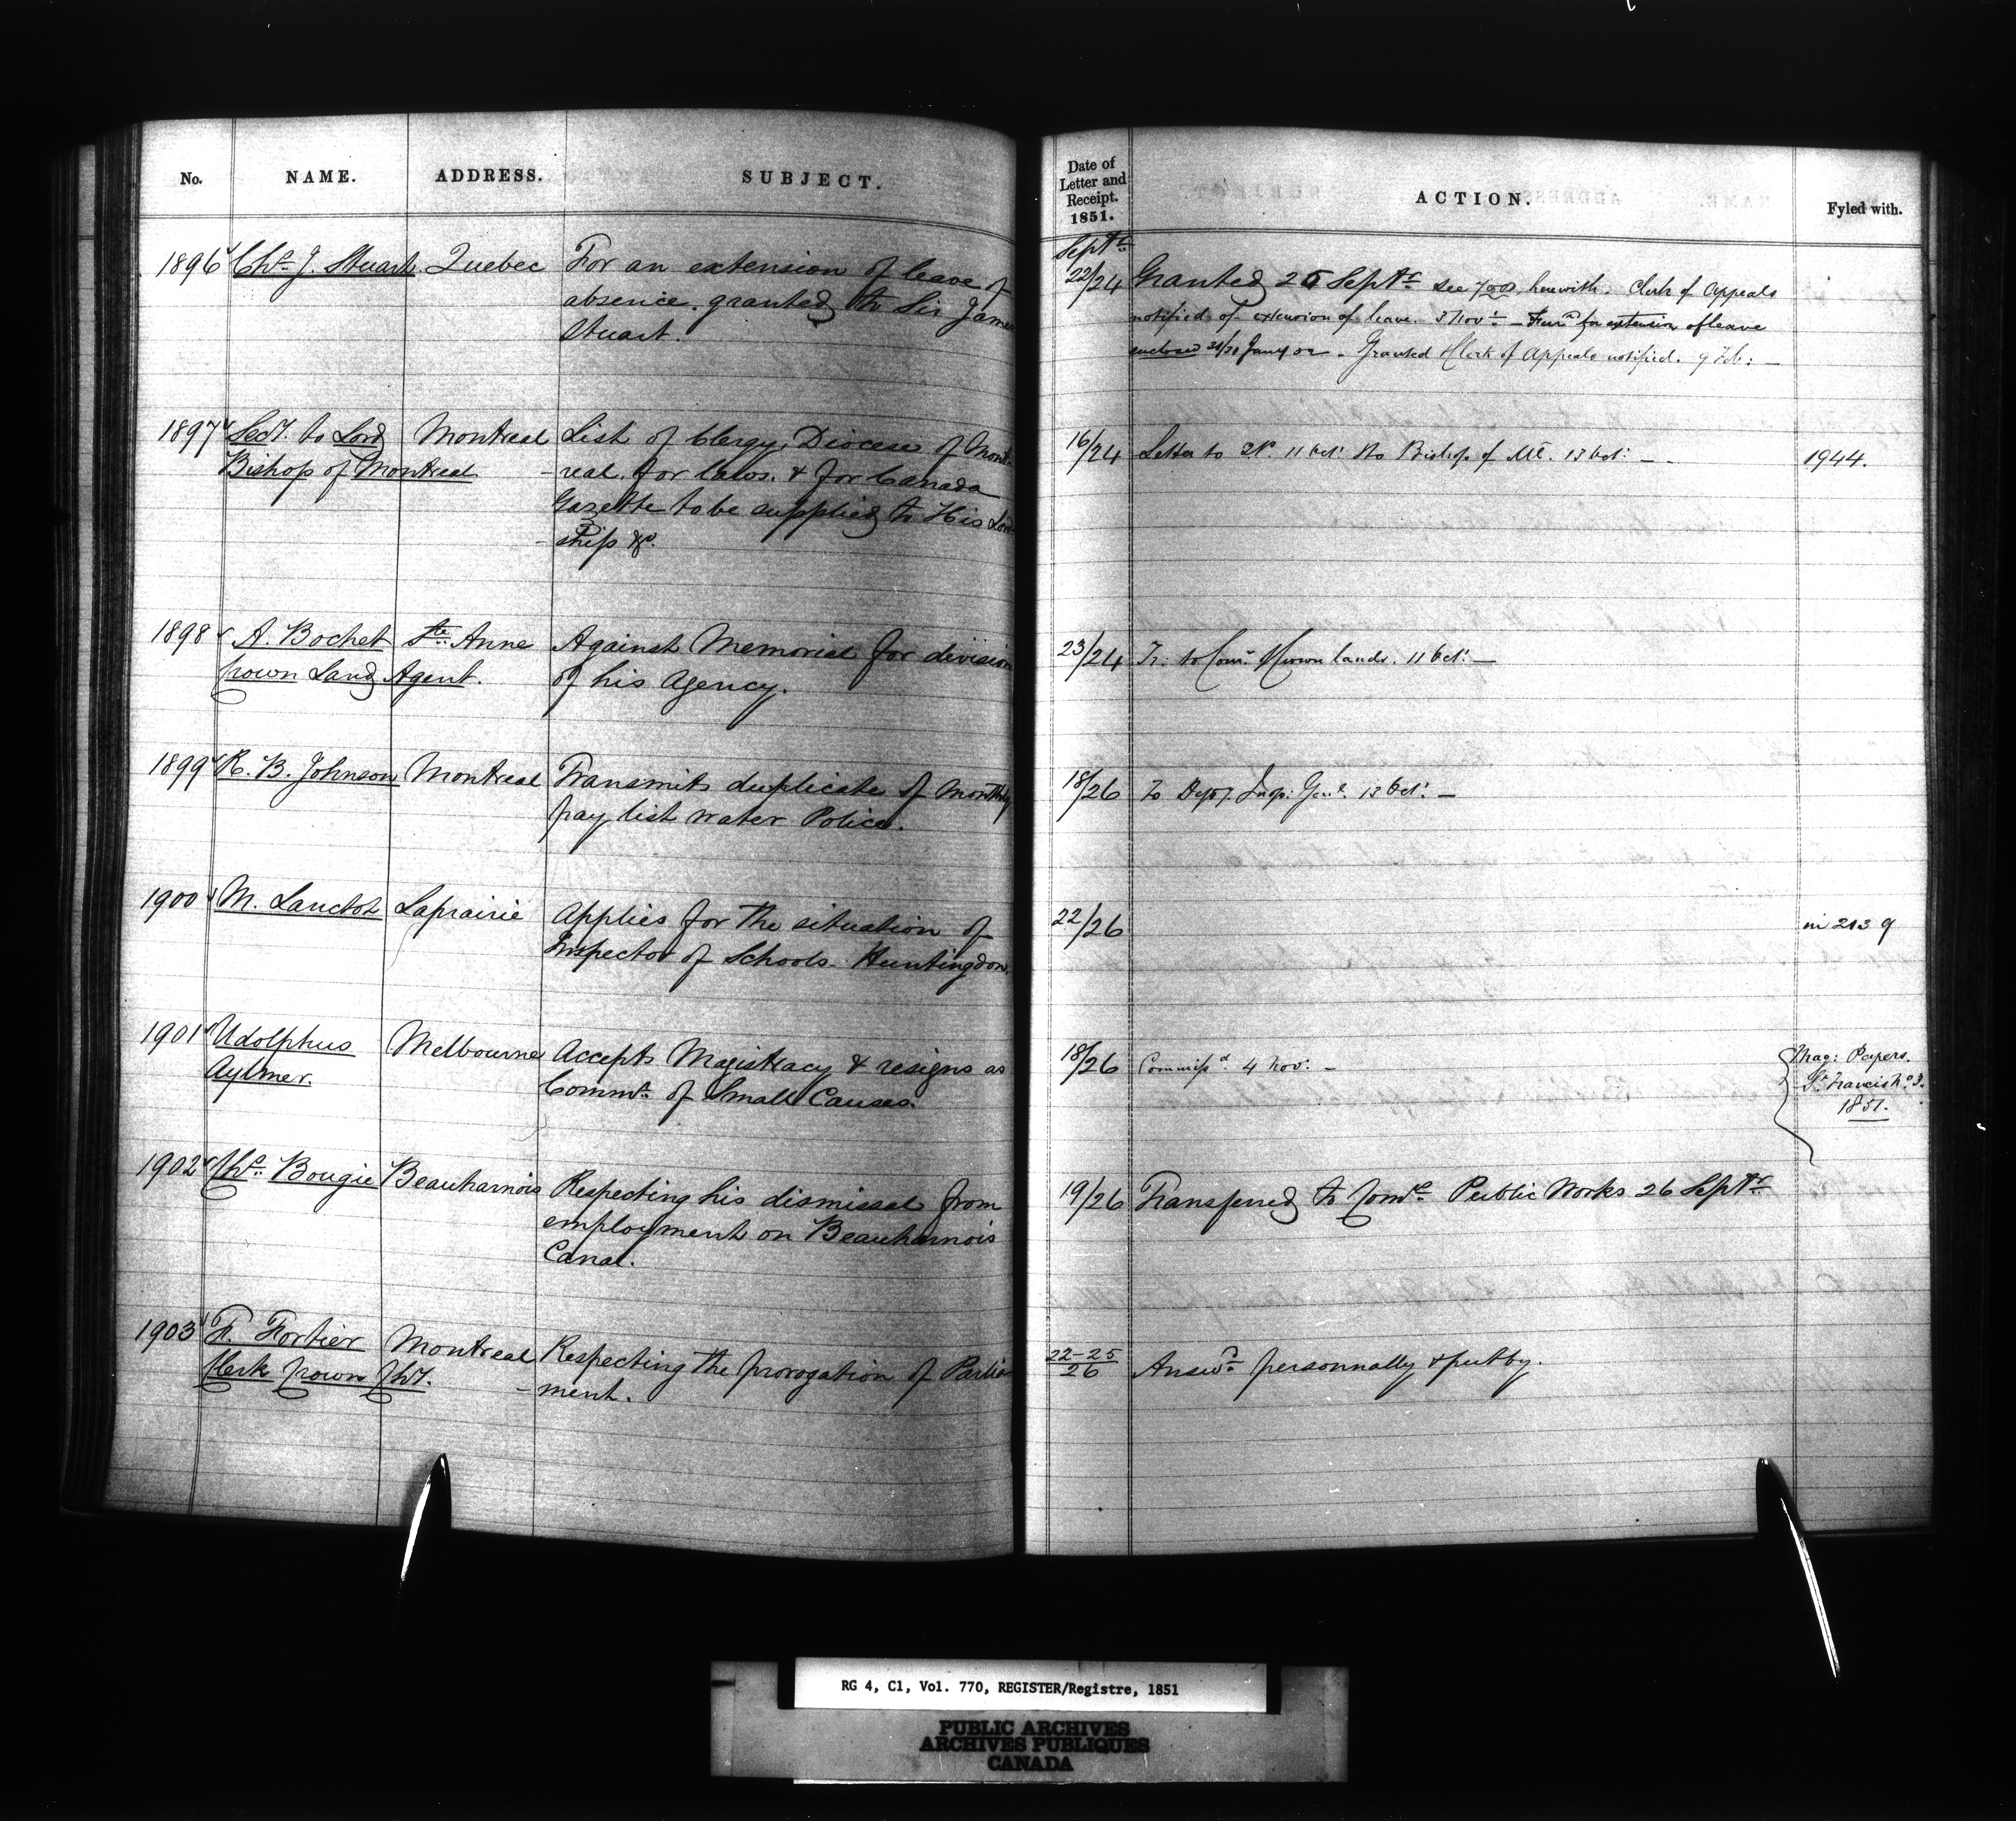 No. NAME. ADDRESS. SUBJECT.
1896 Chs. J. Stuart. Quebec For an extension of leave of
absence. granted to Sir James
Stuart.
1897 Secy. to Lord Montreal List of Clergy, Diocese of Mont-
Bishop of Montreal -real. for laws. & for Canada
Gazette to be supplied to His Lord
-ship &c.
1898 A. Bochet Ste. Anne Against Memorial for division
Crown Land Agent. of his Agency.
1899 R. B. Johnson Montreal Transmits duplicate of Monthly
pay list water Police.
1900 M. Lanctot Laprairie Applies for the situation of
Inspector of Schools - Huntingdon.
1901 Udolphus Melbourne Accepts Magistracy & resigns as
Aylmer. Commr. of Small Causes.
1902 Chs. Bougie Beauharnois Respecting his dismissal from
employment on Beauharnois
Canal.
1903 F. Fortier Montreal Respecting the prorogation of Parlia
Clerk Crown Chy. -ment.
Date of
Letter and
Receipt.
1851.
ACTION. Fyled with.
Septr.
22/24 Granted 25 Septr. see herewith. Clerk of Appeals
notified of extension of leave. 3 Novr. - for extension of leave
enclosed Jany 52 - Granted Clerk of Appeals notified. 9 Feb: -
16/24 Letter to 11 Oct: to Bishop of Ml. 13 Oct: - - 1944.
23/24 Tr. to Comr. Crown lands. 11 Oct: -
18/26 To Depy. Insp: Genl. 13 Oct: -
22/26 in 2139
18/26 Commissd. 4 Nov: - Mag: Papers.
St. Francis No. 3.
1851.
19/26 Transferred to Comrs. Public Works 26 Septr.
22-25
26 Answd. personnally & put by.
RG 4, C1, Vol. 770, REGISTER/Registre, 1851
PUBLIC ARCHIVES
ARCHIVES PUBLIQUES
CANADA